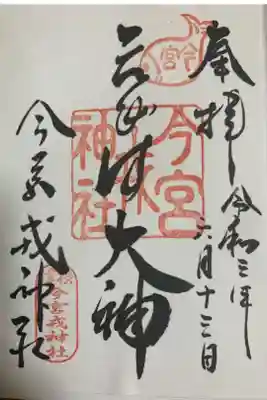 奉拝
令和三年
六月十三日
大神
今宮戎神社
今宮
神社
今宮戎神社